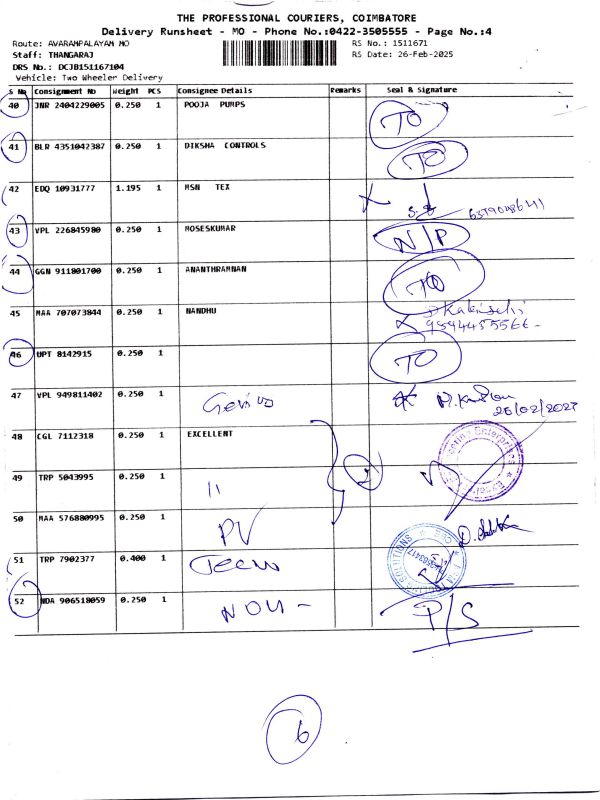 THE PROFESSIONAL COURIERS, COIMBATORE
Delivery Runsheet - MO - Phone No.:0422-3505555 - Page No.:4
Route: AVARAMPALAYAM MO RS No.: 1511671
Staff: THANGARAJ RS Date: 26-Feb-2025
DRS No.: DCJB151167104
Vehicle: Two Wheeler Delivery
S No Consignment No Weight PCS Consignee Details Remarks Seal & Signature
40 JNR 2404229005 0.250 1 POOJA PUMPS TO
41 BLR 4351042387 0.250 1 DIKSHA CONTROLS TO
42 EDQ 10931777 1.195 1 MSN TEX
43 VPL 226845980 0.250 1 MOSESKUMAR N/P
44 GGN 911801700 0.250 1 ANANTHRAMNAN TO
45 MAA 707073844 0.250 1 NANDHU
9594455566-
46 UPT 8142915 0.250 1 TO
47 VPL 949811402 0.250 1
48 CGL 7112318 0.250 1 EXCELLENT
49 TRP 5043995 0.250 1 11 2
50 MAA 576880995 0.250 1 PV
51 TRP 7902377 0.400 1
52 NDA 906518059 0.250 1 P/S
6